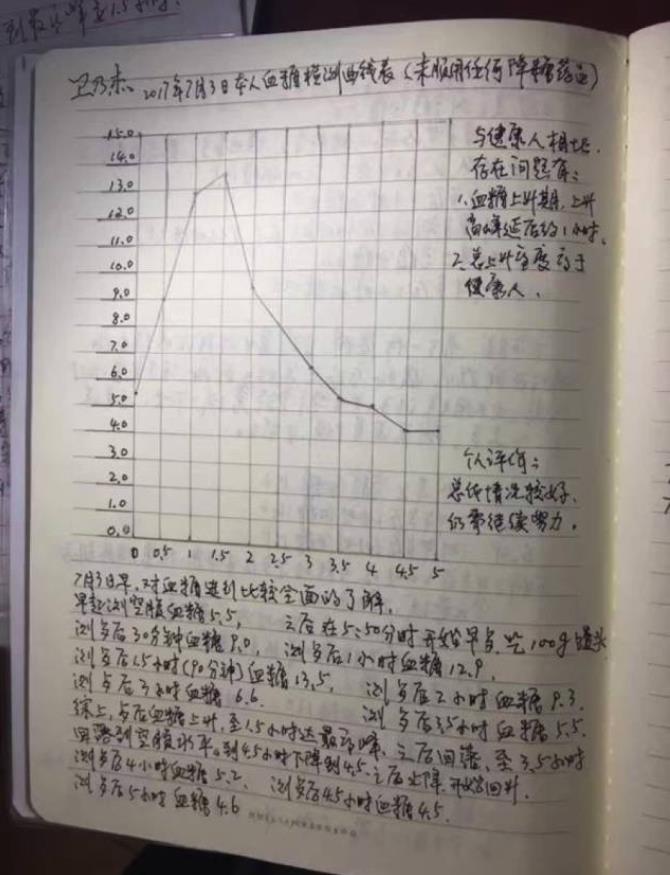 2017年7月3日本人血糖检测曲线表(未服用任何降糖药物)
15.0
14.0
13.0
12.0
11.0
10.0
9.0
8.0
7.0
6.0
5.0
4.0
3.0
2.0
1.0
0.0
0 0.5 1 1.5 2 2.5 3 3.5 4 4.5 5
与健康人相比,
存在问题有:
1.血糖上升期,上升
高峰延后约1小时。
2.总上升高度高于
健康人。
个人评价:
总体情况较好,
仍需继续努力。
7月3日早,对血糖进行比较全面的了解。
早起测空腹血糖5.5, 之后在5:50分时开始早点吃100g馒头
测餐后30分钟血糖9.0, 测餐后1小时血糖12.9,
测餐后1.5小时(90分钟)血糖13.5, 测餐后2小时血糖9.3,
测餐后3小时血糖6.6, 测餐后3.5小时血糖5.5.
综上,餐后血糖上升,至1.5小时达最高峰,之后回落,至3.5小时
回落到空腹水平。到4.5小时下降到4.5.之后止降开始回升.
测餐后4小时血糖5.2, 测餐后4.5小时血糖4.5.
测餐后5小时血糖4.6